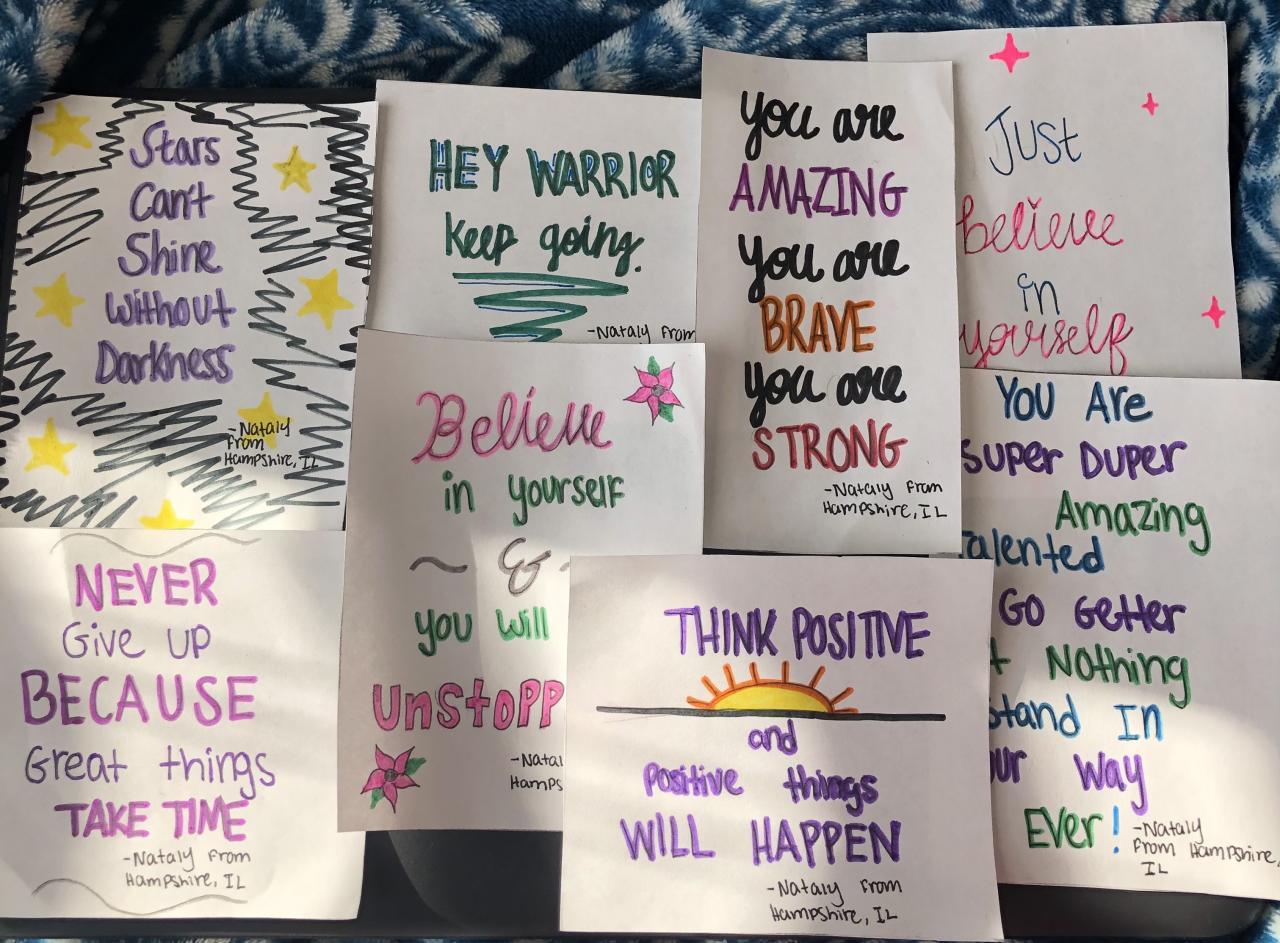 Stars
Can't
Shine
Without
Darkness
-Nataly
From
Hampshire, IL
HEY WARRIOR
Keep going.
-Nataly From
you are
AMAZING
you are
BRAVE
you are
STRONG
-Nataly From
Hampshire, IL
Just
believe
in
yourself
Believe
in yourself
~ &
you will
unstopp
-Natal
Hamps
You Are
Super Duper
Amazing
alented
Go Getter
t Nothing
Stand In
ur Way
Ever!
-Nataly
From Hampshire,
IL
NEVER
Give up
BECAUSE
Great things
TAKE TIME
-Nataly From
Hampshire, IL
THINK POSITIVE
and
Positive things
WILL HAPPEN
-Nataly From
Hampshire, IL